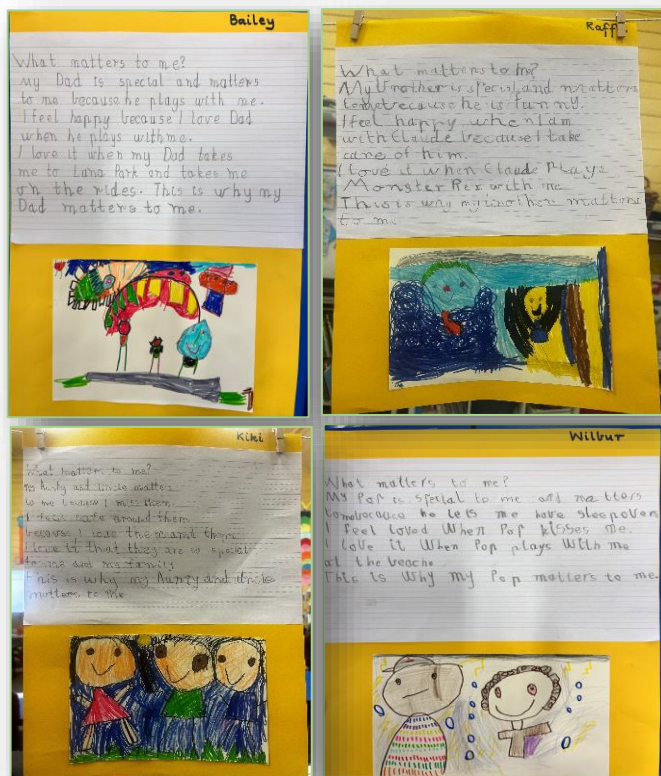 Bailey
What matters to me?
My Dad is special and matters
to me because he plays with me.
I feel happy because I love Dad
when he plays with me.
I love it when my Dad takes
me to Luna Park and takes me
on the rides. This is why my
Dad matters to me.
Raff
What matters to me?
My brother is special and matters
to me because he is funny.
I feel happy when I am
with Claude because I take
care of him.
I love it when Claude Plays
Monster Rex with me
This is why my brother matters
to me
Kiki
What matters to me?
My Aunty and Uncle matter
to me because I miss them.
I feel safe around them
because I love them and they
I love it that they are so special
to me and my family
This is why my Aunty and Uncle
matters to me
Wilbur
What matters to me?
My Pop is special to me and matters
to me because he lets me have sleepovers
I feel loved When Pop kisses me.
I love it When Pop plays With me
at the beach.
This is Why my Pop matters to me.